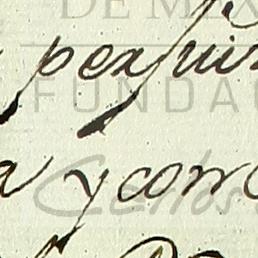 DE MÉX
perjui
FUNDAC
a y con
Carlos